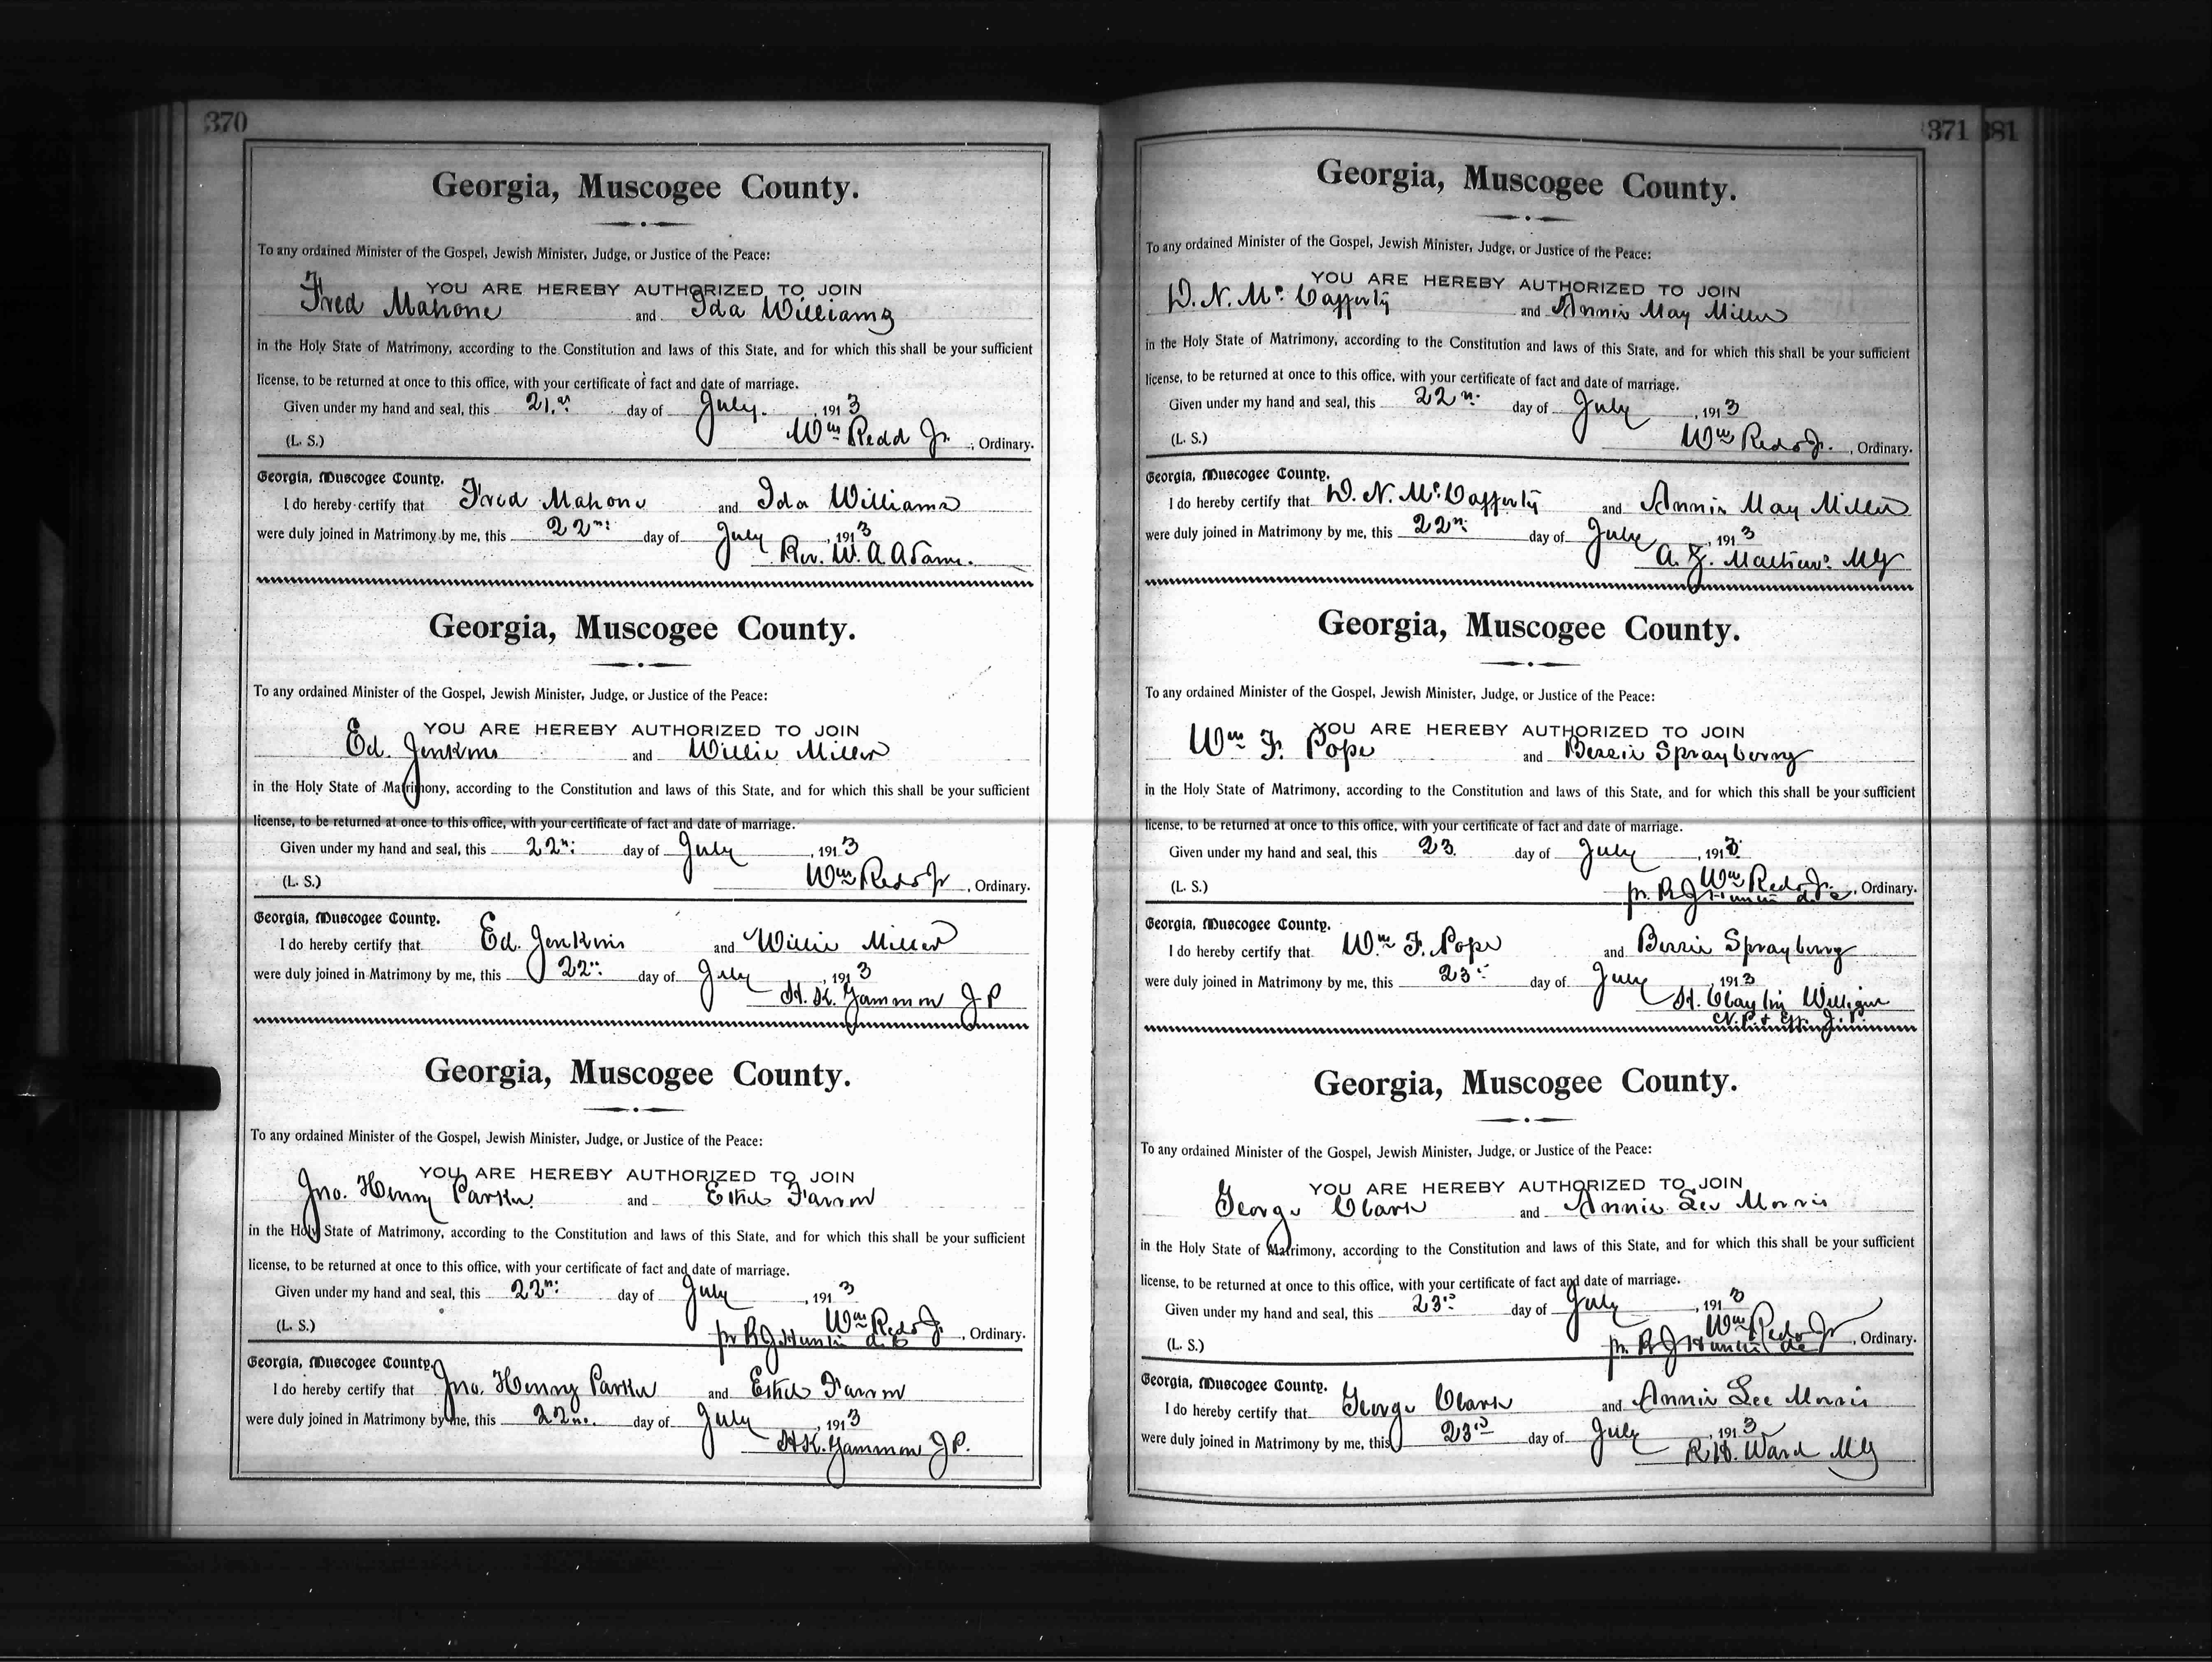 370
Georgia, Muscogee County.
To any ordained Minister of the Gospel, Jewish Minister, Judge, or Justice of the Peace:
YOU ARE HEREBY AUTHORIZED TO JOIN
Fred Mahone and Ida Williams
in the Holy State of Matrimony, according to the Constitution and laws of this State, and for which this shall be your sufficient
license, to be returned at once to this office, with your certificate of fact and date of marriage.
Given under my hand and seal, this 21.st day of July. , 1913
(L. S.) Wm Redd Jr. , Ordinary.
Georgia, Muscogee County.
I do hereby certify that Fred Mahone and Ida Williams
were duly joined in Matrimony by me, this 22nd day of July , 1913
Rev. W. A Adams.
Georgia, Muscogee County.
To any ordained Minister of the Gospel, Jewish Minister, Judge, or Justice of the Peace:
YOU ARE HEREBY AUTHORIZED TO JOIN
Ed. Jenkins and Willie Miller
in the Holy State of Matrimony, according to the Constitution and laws of this State, and for which this shall be your sufficient
license, to be returned at once to this office, with your certificate of fact and date of marriage.
Given under my hand and seal, this 22nd day of July , 1913
(L. S.) Wm Redd Jr , Ordinary.
Georgia, Muscogee County.
I do hereby certify that Ed. Jenkins and Willie Miller
were duly joined in Matrimony by me, this 22nd day of July , 1913
H. K. Gammon J P
Georgia, Muscogee County.
To any ordained Minister of the Gospel, Jewish Minister, Judge, or Justice of the Peace:
YOU ARE HEREBY AUTHORIZED TO JOIN
Jno. Henry Parker and Ethel Farror
in the Holy State of Matrimony, according to the Constitution and laws of this State, and for which this shall be your sufficient
license, to be returned at once to this office, with your certificate of fact and date of marriage.
Given under my hand and seal, this 22nd day of July , 1913
Wm Redd Jr
(L. S.) pr R J Hunter , Ordinary.
Georgia, Muscogee County.
I do hereby certify that Jno. Henry Parker and Ethel Farror
were duly joined in Matrimony by me, this 22nd day of July , 1913
H K. Gammon J P.
371 381
Georgia, Muscogee County.
To any ordained Minister of the Gospel, Jewish Minister, Judge, or Justice of the Peace:
YOU ARE HEREBY AUTHORIZED TO JOIN
D. N. Mc Cafferty and Annie May Miller
in the Holy State of Matrimony, according to the Constitution and laws of this State, and for which this shall be your sufficient
license, to be returned at once to this office, with your certificate of fact and date of marriage.
Given under my hand and seal, this 22nd day of July , 1913
(L. S.) Wm Redd Jr. , Ordinary.
Georgia, Muscogee County.
I do hereby certify that D. N. Mc Cafferty and Annie May Miller
were duly joined in Matrimony by me, this 22nd day of July , 1913
MG
Georgia, Muscogee County.
To any ordained Minister of the Gospel, Jewish Minister, Judge, or Justice of the Peace:
YOU ARE HEREBY AUTHORIZED TO JOIN
Wm F. Pope and Bessie Sprayberry
in the Holy State of Matrimony, according to the Constitution and laws of this State, and for which this shall be your sufficient
license, to be returned at once to this office, with your certificate of fact and date of marriage.
Given under my hand and seal, this 23. day of July , 1913
Wm Redd Jr.
(L. S.) pr. R J Hunter , Ordinary.
Georgia, Muscogee County.
I do hereby certify that Wm F. Pope and Bessie Sprayberry
were duly joined in Matrimony by me, this 23rd day of July , 1913
H. J. P.
Georgia, Muscogee County.
To any ordained Minister of the Gospel, Jewish Minister, Judge, or Justice of the Peace:
YOU ARE HEREBY AUTHORIZED TO JOIN
George Clark and Annie Lee Morris
in the Holy State of Matrimony, according to the Constitution and laws of this State, and for which this shall be your sufficient
license, to be returned at once to this office, with your certificate of fact and date of marriage.
Given under my hand and seal, this 23rd day of July , 1913
Wm Redd Jr
(L. S.) pr. R J Hunter , Ordinary.
Georgia, Muscogee County.
I do hereby certify that George Clark and Annie Lee Morris
were duly joined in Matrimony by me, this 23rd day of July , 1913
R H. Ward MG